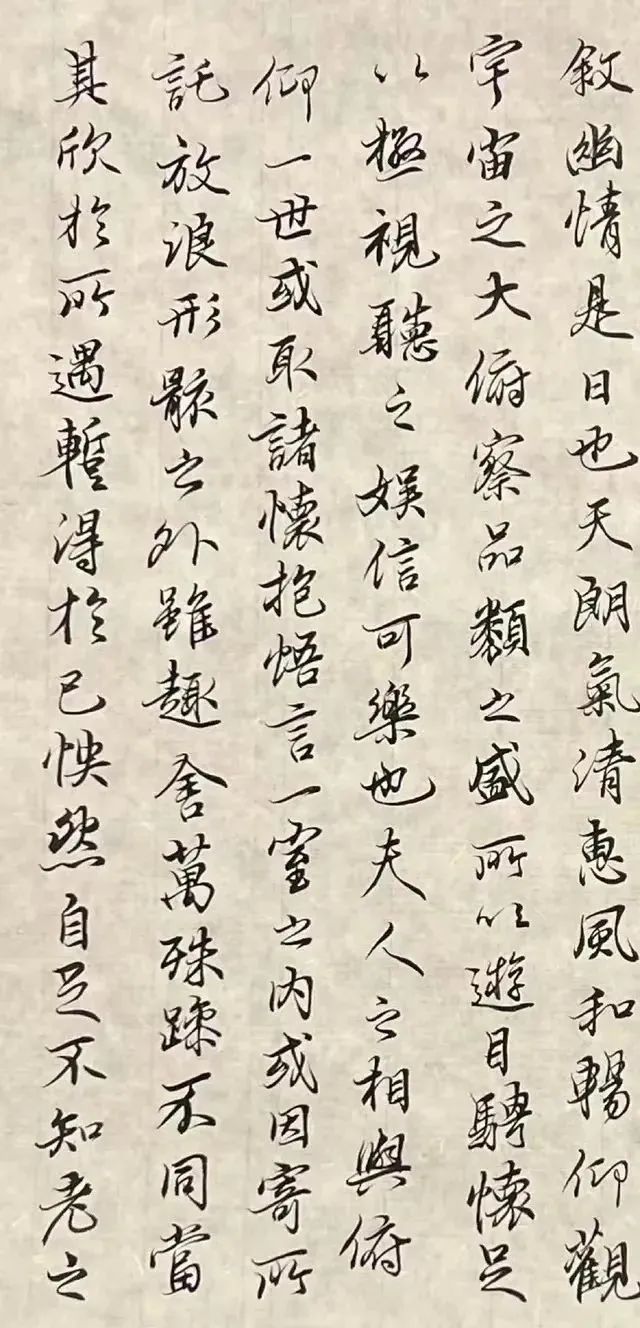 敘幽情是日也天朗氣清惠風和暢仰觀
宇宙之大俯察品類之盛所以遊目騁懷足
以極視聽之娛信可樂也夫人之相與俯
仰一世或取諸懷抱悟言一室之內或因寄所
託放浪形骸之外雖趣舍萬殊躁不同當
其欣於所遇暫得於己怏然自足不知老之